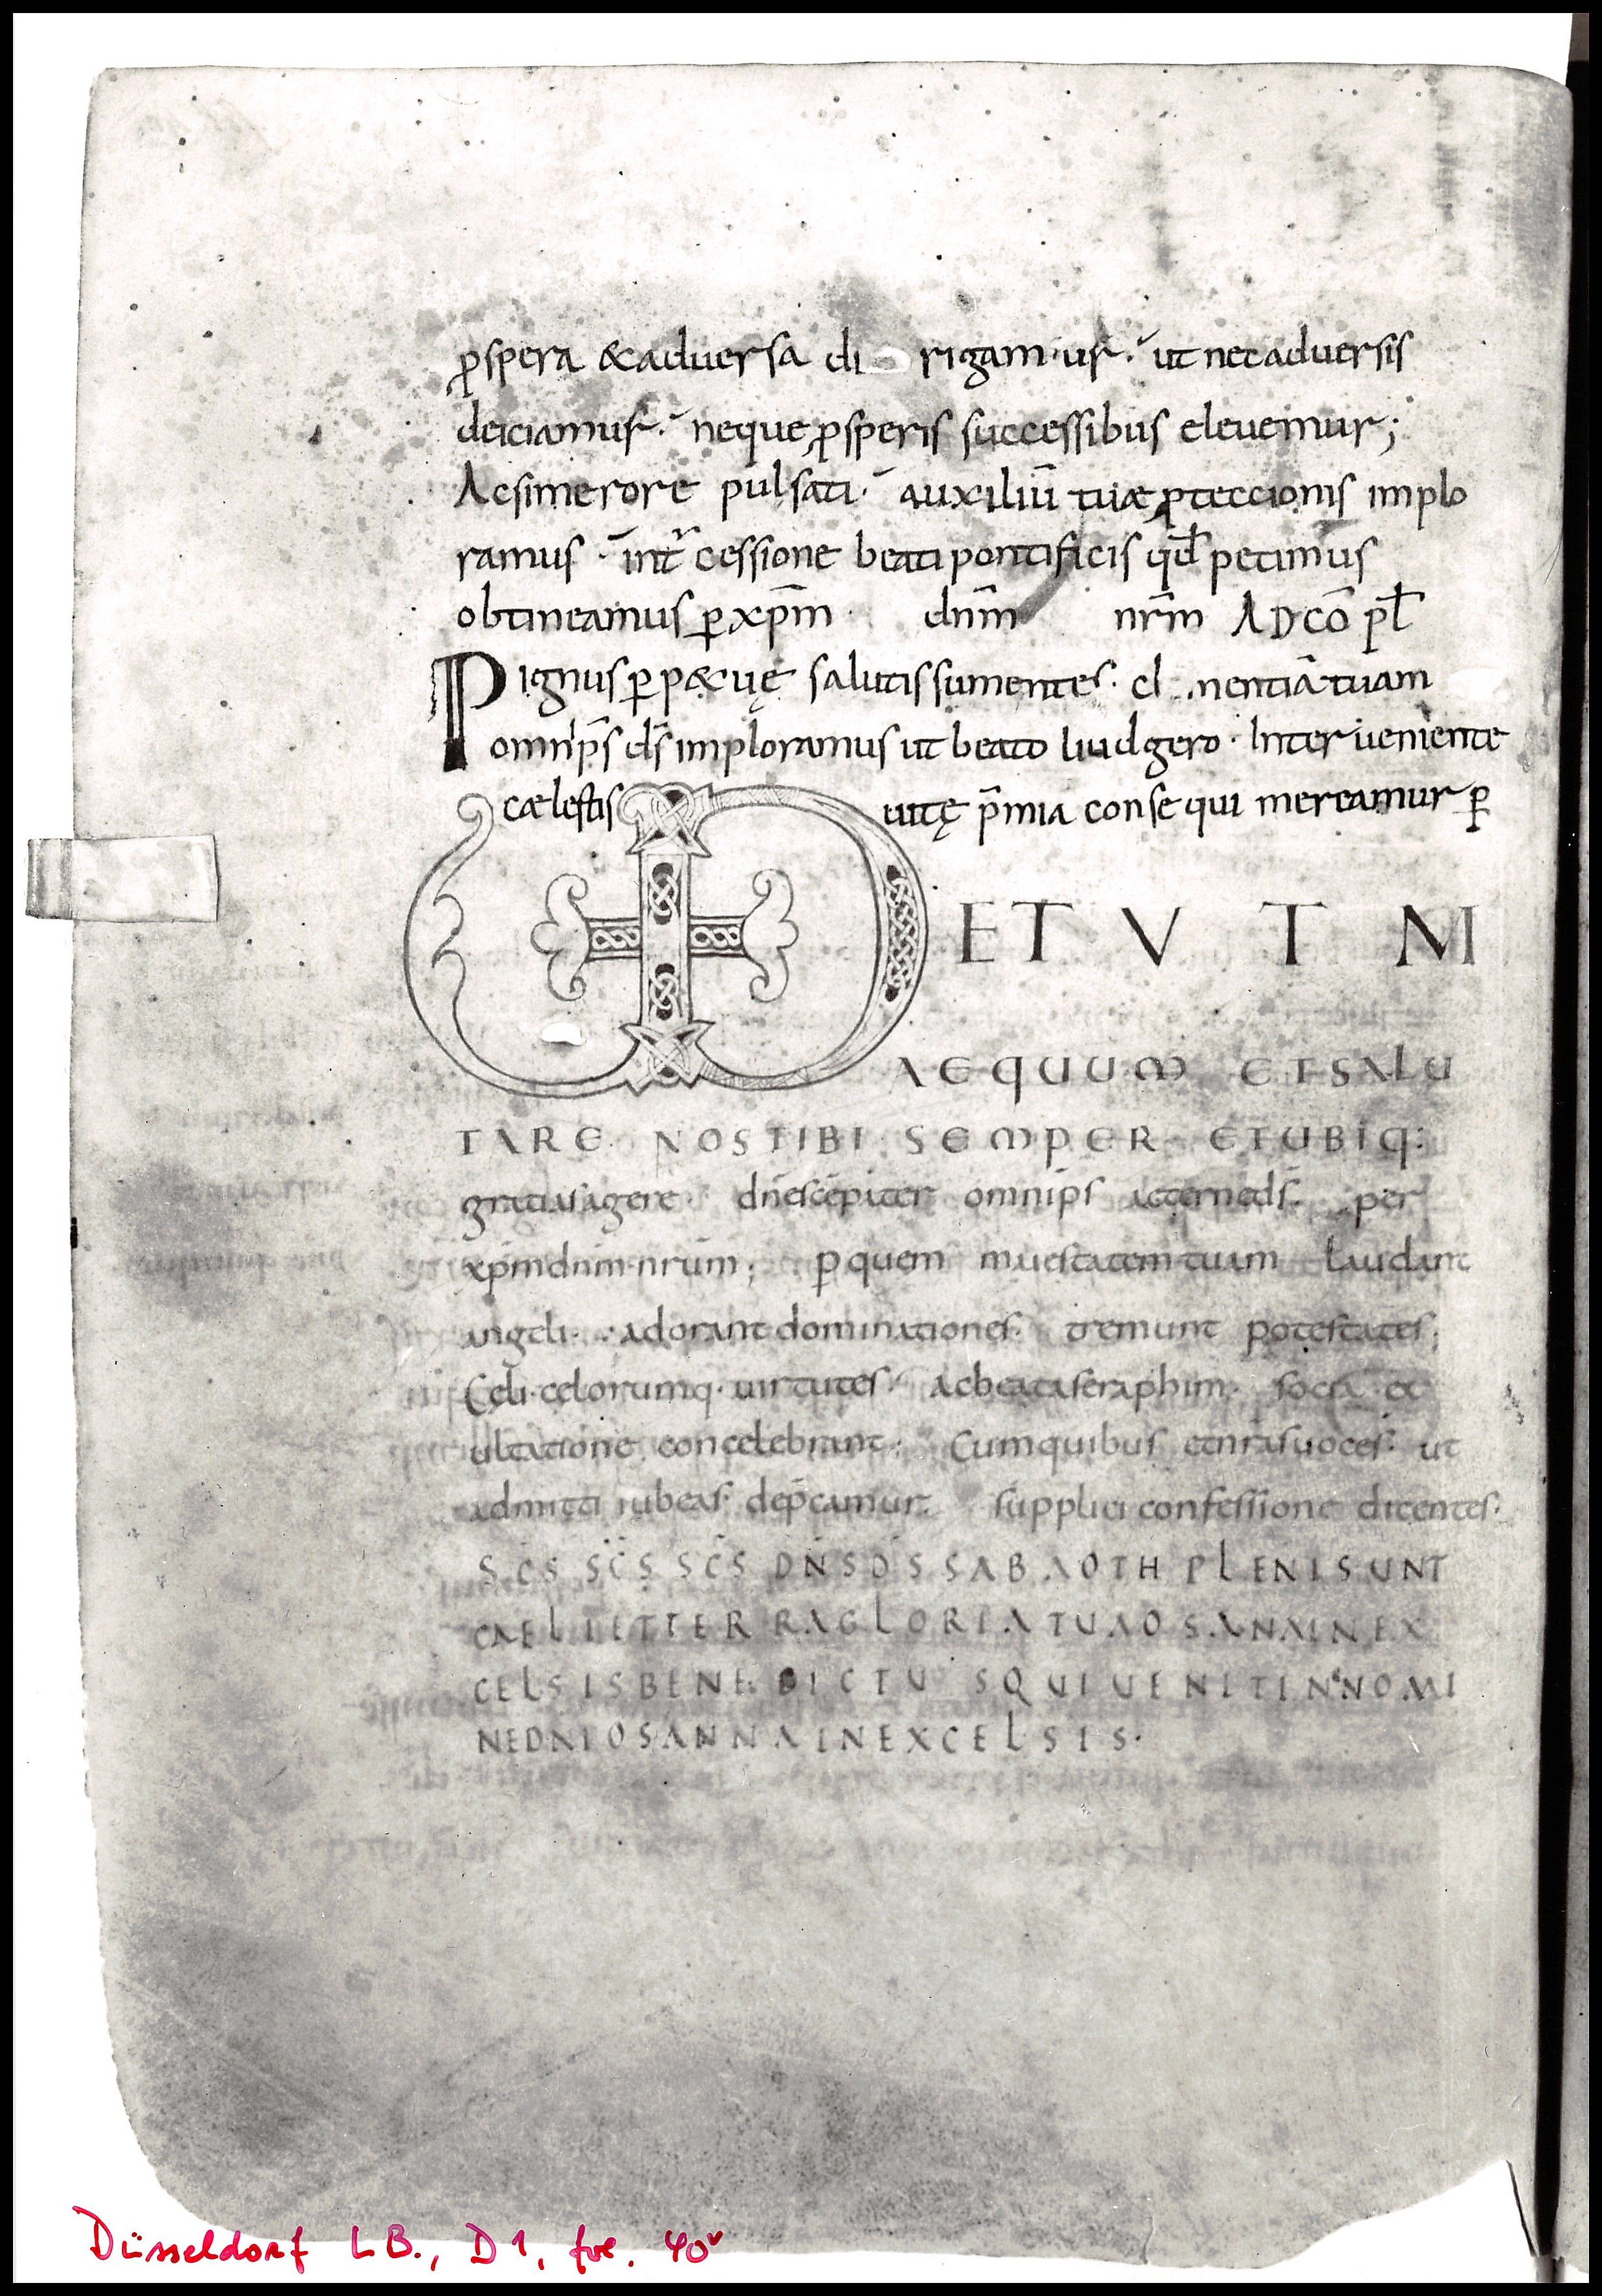 ꝓspera & aduersa di rigam·us· ut nec aduersis
deiciamus· neque ꝓsperis successibus eleuemur;
Ac si merore pulsati· auxiliū tuae ꝓteccionis implo
ramus· int̄cessione beati pontificis qd̄ petimus
obtineamus ꝑ xp̄m dn̄m nr̄m AD CŌ pl̄
Pignus ꝑp&uę salutis sumentes· cl nentiā tuam
omnip̄s ds̄ imploramus ut beato liudgero· Inter ueniente
caelestis uitę p̄mia consequi mereamur ꝑ
ET V T M
AEQUUM ET SALU
TARE NOS TIBI SEMPER ET UBIQ:
gratias agere· dn̄e sc̄e pater omnip̄s aeterne ds̄· per
xp̄m dn̄m nrūm; ꝑ quem maiestatem tuam laudant
angeli· adorant dominationes· tremunt potestates·
Celi· celorumq· uirtutes· ac beata seraphim· socia ex
ultatione concelebrant· Cum quibus et nr̄as uoces· ut
admitti iubeas· dep̄camur· supplici confessione dicentes·
SC̄S SC̄S SC̄S DN̄S D̄S SABAOTH PLENI SUNT
CAELI ET TERRA GLORIA TUA OSANA IN EX
CELSIS BENEDICTUS QUI UENIT IN NOMI
NE DNI OSANNA IN EXCELSIS·
Düsseldorf LB., D1, fol. 40v